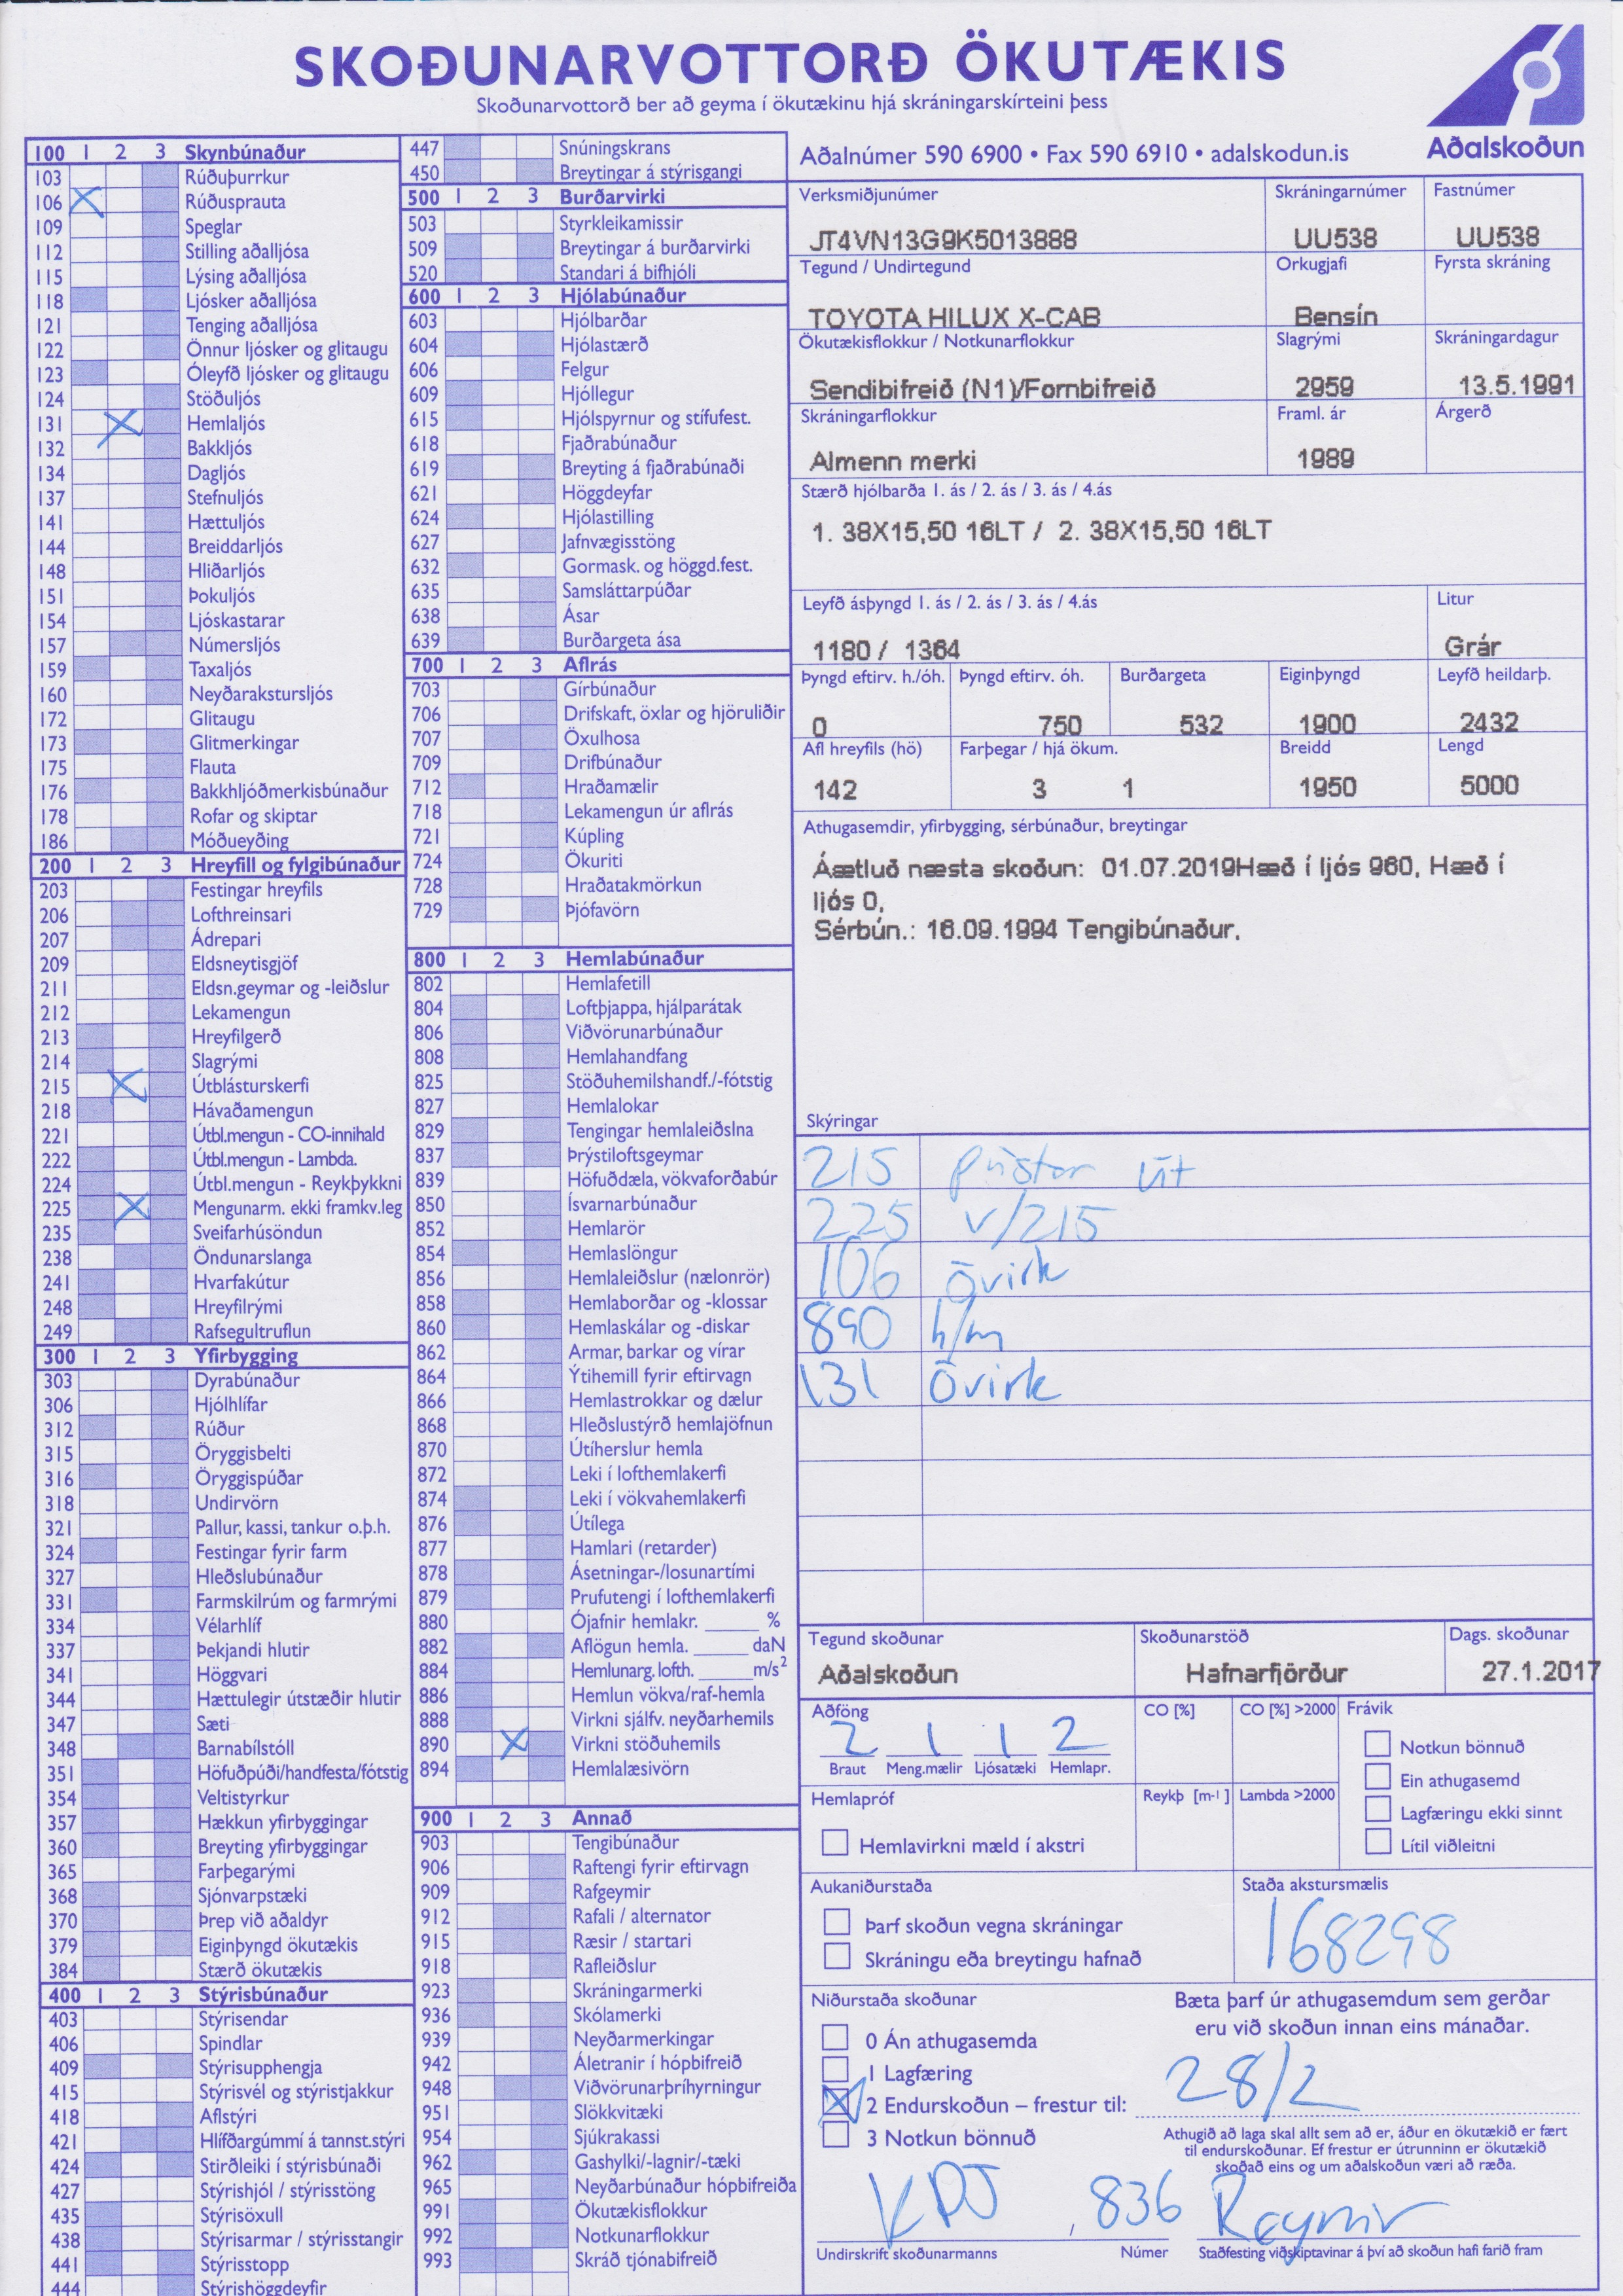 SKOÐUNARVOTTORÐ ÖKUTÆKIS
Skoðunarvottorð ber að geyma í ökutækinu hjá skráningarskírteini þess
Aðalskoðun
Aðalnúmer 590 6900 • Fax 590 6910 • adalskodun.is
100 1 2 3 Skynbúnaður
103 Rúðuþurrkur
106 Rúðusprauta
109 Speglar
112 Stilling aðalljósa
115 Lýsing aðalljósa
118 Ljósker aðalljósa
121 Tenging aðalljósa
122 Önnur ljósker og glitaugu
123 Óleyfð ljósker og glitaugu
124 Stöðuljós
131 Hemlaljós
132 Bakkljós
134 Dagljós
137 Stefnuljós
141 Hættuljós
144 Breiddarljós
148 Hliðarljós
151 Þokuljós
154 Ljóskastarar
157 Númersljós
159 Taxaljós
160 Neyðarakstursljós
172 Glitaugu
173 Glitmerkingar
175 Flauta
176 Bakkhljóðmerkisbúnaður
178 Rofar og skiptar
186 Móðueyðing
200 1 2 3 Hreyfill og fylgibúnaður
203 Festingar hreyfils
206 Lofthreinsari
207 Ádrepari
209 Eldsneytisgjöf
211 Eldsn.geymar og -leiðslur
212 Lekamengun
213 Hreyfilgerð
214 Slagrými
215 Útblásturskerfi
218 Hávaðamengun
221 Útbl.mengun - CO-innihald
222 Útbl.mengun - Lambda.
224 Útbl.mengun - Reykþykkni
225 Mengunarm. ekki framkv.leg
235 Sveifarhúsöndun
238 Öndunarslanga
241 Hvarfakútur
248 Hreyfilrými
249 Rafsegultruflun
300 1 2 3 Yfirbygging
303 Dyrabúnaður
306 Hjólhlífar
312 Rúður
315 Öryggisbelti
316 Öryggispúðar
318 Undirvörn
321 Pallur, kassi, tankur o.þ.h.
324 Festingar fyrir farm
327 Hleðslubúnaður
331 Farmskilrúm og farmrými
334 Vélarhlíf
337 Þekjandi hlutir
341 Höggvari
344 Hættulegir útstæðir hlutir
347 Sæti
348 Barnabílstóll
351 Höfuðpúði/handfesta/fótstig
354 Veltistyrkur
357 Hækkun yfirbyggingar
360 Breyting yfirbyggingar
365 Farþegarými
368 Sjónvarpstæki
370 Þrep við aðaldyr
379 Eiginþyngd ökutækis
384 Stærð ökutækis
400 1 2 3 Stýrisbúnaður
403 Stýrisendar
406 Spindlar
409 Stýrisupphengja
415 Stýrisvél og stýristjakkur
418 Aflstýri
421 Hlífðargúmmí á tannst.stýri
424 Stirðleiki í stýrisbúnaði
427 Stýrishjól / stýrisstöng
435 Stýrisöxull
438 Stýrisarmar / stýrisstangir
441 Stýrisstopp
444 Stýrishöggdeyfir
447 Snúningskrans
450 Breytingar á stýrisgangi
500 1 2 3 Burðarvirki
503 Styrkleikamissir
509 Breytingar á burðarvirki
520 Standari á bifhjóli
600 1 2 3 Hjólabúnaður
603 Hjólbarðar
604 Hjólastærð
606 Felgur
609 Hjóllegur
615 Hjólspyrnur og stífufest.
618 Fjaðrabúnaður
619 Breyting á fjaðrabúnaði
621 Höggdeyfar
624 Hjólastilling
627 Jafnvægisstöng
632 Gormask. og höggd.fest.
635 Samsláttarpúðar
638 Ásar
639 Burðargeta ása
700 1 2 3 Aflrás
703 Gírbúnaður
706 Drifskaft, öxlar og hjöruliðir
707 Öxulhosa
709 Drifbúnaður
712 Hraðamælir
718 Lekamengun úr aflrás
721 Kúpling
724 Ökuriti
728 Hraðatakmörkun
729 Þjófavörn
800 1 2 3 Hemlabúnaður
802 Hemlafetill
804 Loftþjappa, hjálparátak
806 Viðvörunarbúnaður
808 Hemlahandfang
825 Stöðuhemilshandf./-fótstig
827 Hemlalokar
829 Tengingar hemlaleiðslna
837 Þrýstiloftsgeymar
839 Höfuðdæla, vökvaforðabúr
850 Ísvarnarbúnaður
852 Hemlarör
854 Hemlaslöngur
856 Hemlaleiðslur (nælonrör)
858 Hemlaborðar og -klossar
860 Hemlaskálar og -diskar
862 Armar, barkar og vírar
864 Ýtihemill fyrir eftirvagn
866 Hemlastrokkar og dælur
868 Hleðslustýrð hemlajöfnun
870 Útíherslur hemla
872 Leki í lofthemlakerfi
874 Leki í vökvahemlakerfi
876 Útílega
877 Hamlari (retarder)
878 Ásetningar-/losunartími
879 Prufutengi í lofthemlakerfi
880 Ójafnir hemlakr. ______ %
882 Aflögun hemla. ______ daN
884 Hemlunarg. lofth. ______ m/s²
886 Hemlun vökva/raf-hemla
888 Virkni sjálfv. neyðarhemils
890 Virkni stöðuhemils
894 Hemlalæsivörn
900 1 2 3 Annað
903 Tengibúnaður
906 Raftengi fyrir eftirvagn
909 Rafgeymir
912 Rafali / alternator
915 Ræsir / startari
918 Rafleiðslur
923 Skráningarmerki
936 Skólamerki
939 Neyðarmerkingar
942 Áletranir í hópbifreið
948 Viðvörunarþríhyrningur
951 Slökkvitæki
954 Sjúkrakassi
962 Gashylki/-lagnir/-tæki
965 Neyðarbúnaður hópbifreiða
991 Ökutækisflokkur
992 Notkunarflokkur
993 Skráð tjónabifreið
Verksmiðjunúmer Skráningarnúmer Fastnúmer
JT4VN13G9K5013888 UU538 UU538
Tegund / Undirtegund Orkugjafi Fyrsta skráning
TOYOTA HILUX X-CAB Bensín
Ökutækisflokkur / Notkunarflokkur Slagrými Skráningardagur
Sendibifreið (N1)/Fornbifreið 2959 13.5.1991
Skráningarflokkur Framl. ár Árgerð
Almenn merki 1989
Stærð hjólbarða 1. ás / 2. ás / 3. ás / 4.ás
1. 38X15,50 16LT / 2. 38X15,50 16LT
Leyfð ásþyngd 1. ás / 2. ás / 3. ás / 4.ás Litur
1180 / 1364 Grár
Þyngd eftirv. h./óh. Þyngd eftirv. óh. Burðargeta Eiginþyngd Leyfð heildarþ.
0 750 532 1900 2432
Afl hreyfils (hö) Farþegar / hjá ökum. Breidd Lengd
142 3 1 1950 5000
Athugasemdir, yfirbygging, sérbúnaður, breytingar
Áætluð næsta skoðun: 01.07.2019Hæð í ljós 960, Hæð í
ljós 0,
Sérbún.: 16.09.1994 Tengibúnaður,
Skýringar
215 pústar út
225 v/215
106 óvirk
890 h/m
131 óvirk
Tegund skoðunar Skoðunarstöð Dags. skoðunar
Aðalskoðun Hafnarfjörður 27.1.2017
Aðföng CO [%] CO [%] >2000 Frávik
2 1 1 2
Braut Meng.mælir Ljósatæki Hemlapr.
Notkun bönnuð
Ein athugasemd
Lagfæringu ekki sinnt
Lítil viðleitni
Hemlapróf Reykþ [m-1] Lambda >2000
Hemlavirkni mæld í akstri
Aukaniðurstaða Staða akstursmælis
Þarf skoðun vegna skráningar
Skráningu eða breytingu hafnað
168298
Niðurstaða skoðunar
0 Án athugasemda
1 Lagfæring
2 Endurskoðun – frestur til:
3 Notkun bönnuð
Bæta þarf úr athugasemdum sem gerðar
eru við skoðun innan eins mánaðar.
28/2
Athugið að laga skal allt sem að er, áður en ökutækið er fært
til endurskoðunar. Ef frestur er útrunninn er ökutækið
skoðað eins og um aðalskoðun væri að ræða.
KDJ , 836 Reynir
Undirskrift skoðunarmanns Númer Staðfesting viðskiptavinar á því að skoðun hafi farið fram